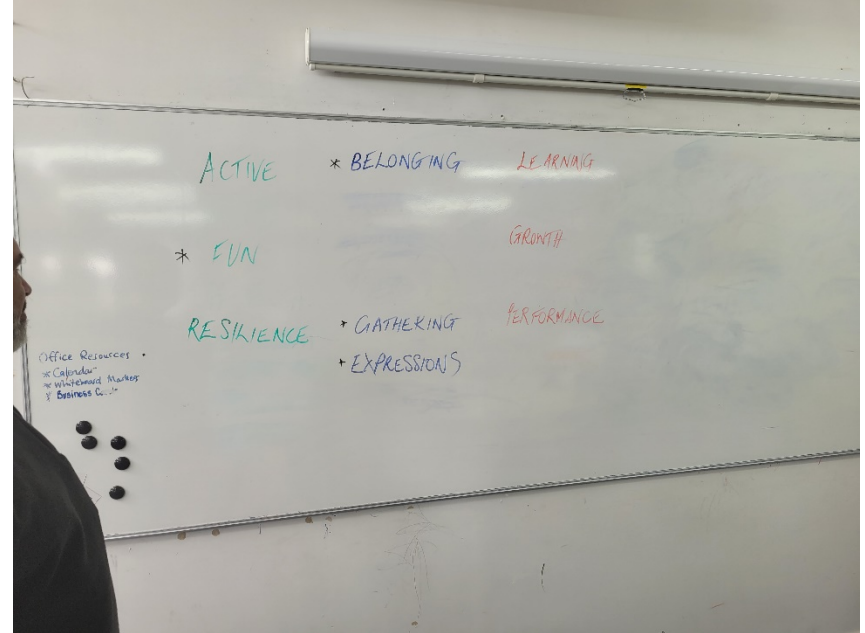 ACTIVE
* FUN
RESILIENCE
* BELONGING
* GATHERING
* EXPRESSIONS
LEARNING
GROWTH
PERFORMANCE
Office Resources
* Calendar
* Whiteboard Markers
* Business